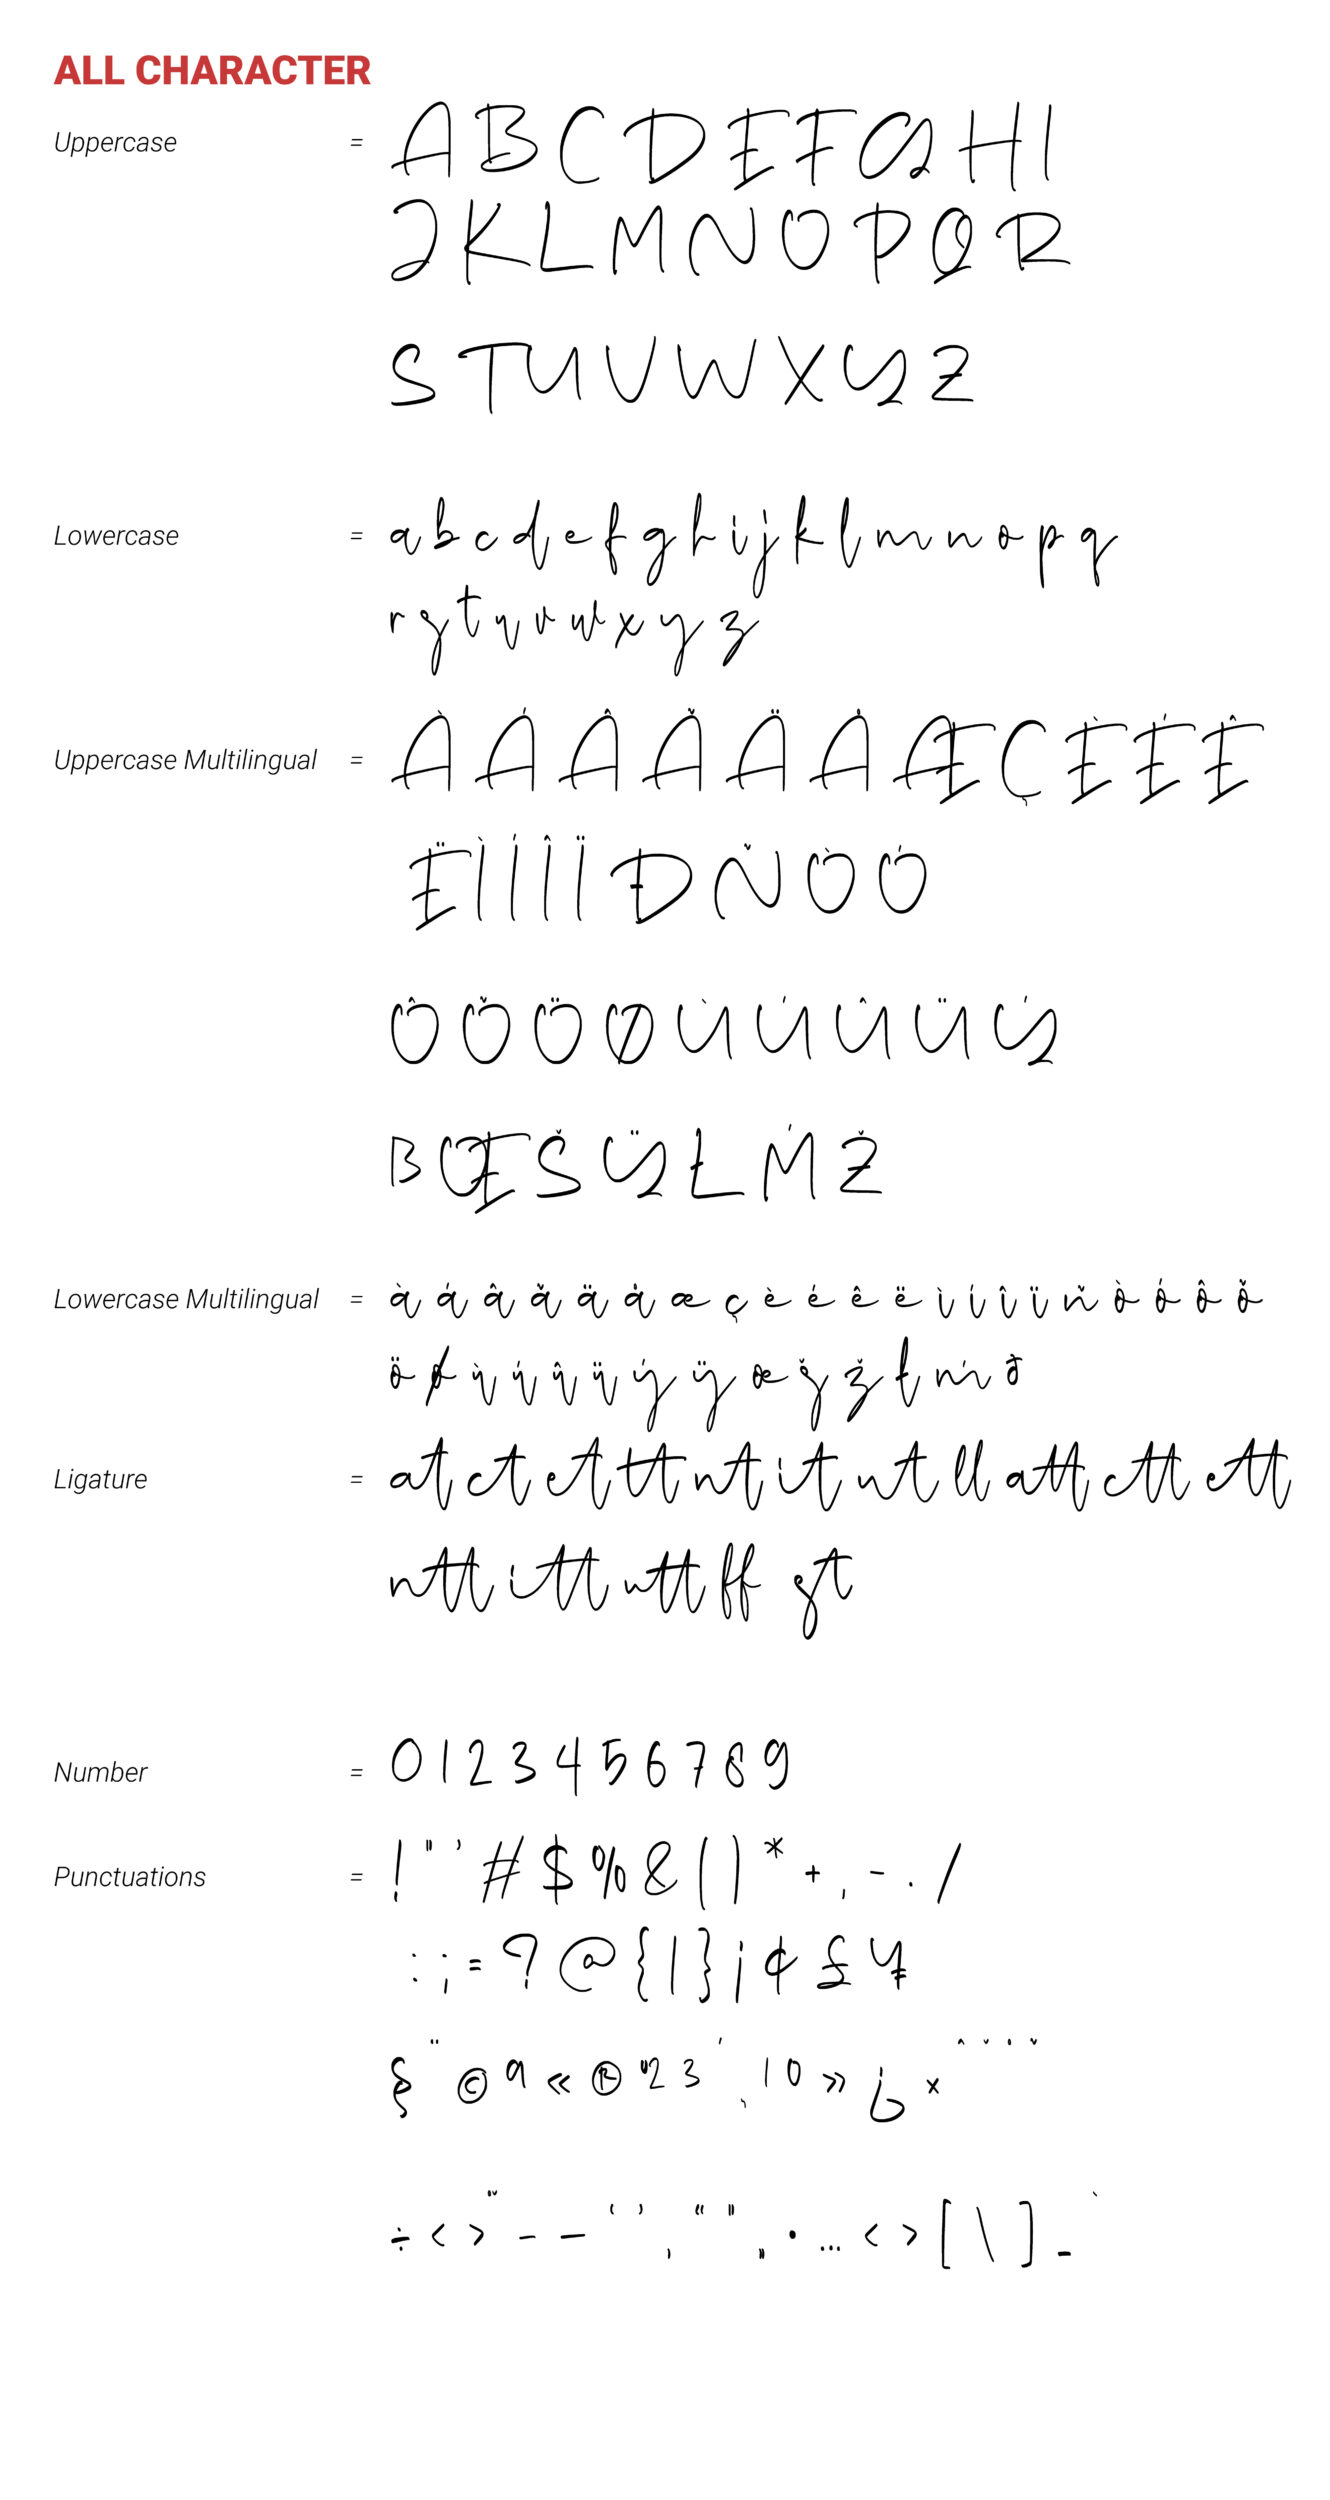 ALL CHARACTER
Uppercase = A B C D E F G H I
J K L M N O P Q R
S T U V W X Y Z
Lowercase = a b c d e f g h i j k l m n o p q
r s t u v w x y z
Uppercase Multilingual = À Á Â Ã Ä Å Æ Ç È É Ê
Ë Ì Í Î Ï Đ Ñ Ò Ó
Ô Õ Ö Ø Ù Ú Û Ü Ý
ß Œ Š Ÿ Ł Ḿ Ž
Lowercase Multilingual = à á â ã ä å æ ç è é ê ë ì í î ï ñ ò ó ô õ
ö ø ù ú û ü ý ÿ œ š ž ł ḿ ð
Ligature = at ct et tt nt it ut ll att ctt ett
ntt itt utt ff st
Number = 0 1 2 3 4 5 6 7 8 9
Punctuations = ! " ' # $ % & ( ) * + , - . /
: ; = ? @ { | } ¡ ¢ £ ¥
§ ¨ © ª « ® ² ³ ´ ¸ ¹ º » ¿ ×
÷ < > – — ‘ ’ ‚ “ ” „ • … ‹ › [ \ ] _ `